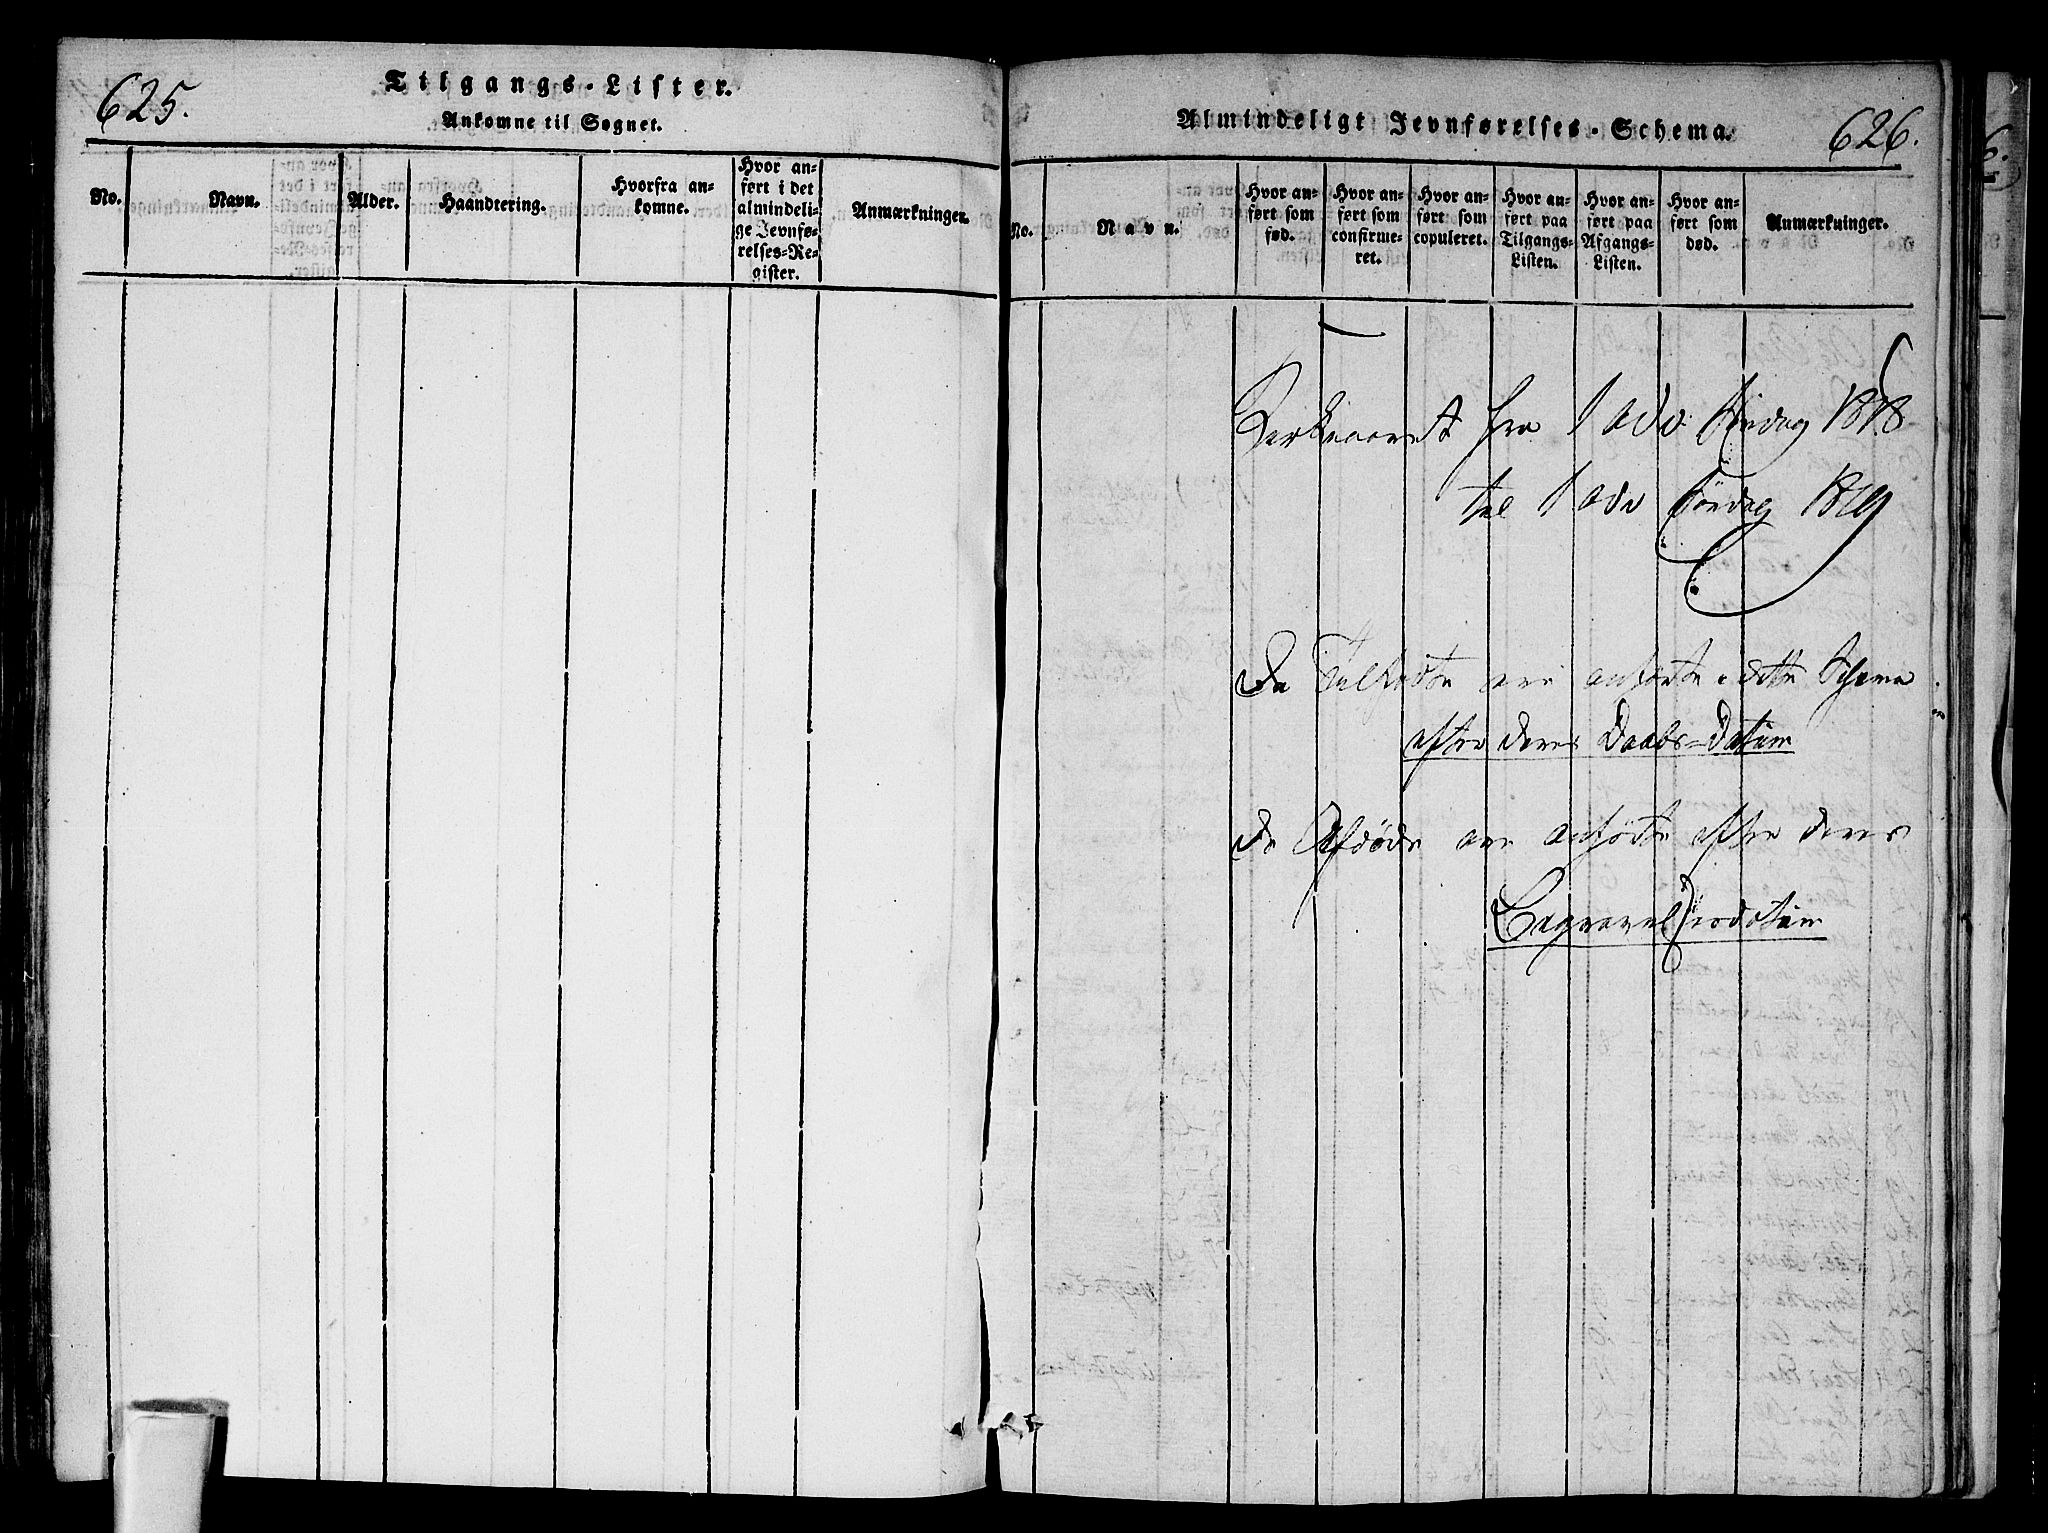 625.
Tilgangs-Lister.
Ankomne til Sognet.
No.
Navn.
Alder.
Haandtering.
Hvorfra an-
komne.
Hvor an-
ført i det
almindeli-
ge Jevnfø-
relses-Re-
gister.
Anmærkninger.
Almindeligt Jevnførelses-Schema.
626.
No.
Navn.
Hvor an-
ført som
fød.
Hvor an-
ført som
confirme-
ret.
Hvor an-
ført som
copuleret.
Hvor an-
ført paa
Tilgangs-
Listen.
Hvor an-
ført paa
Afgangs-
Listen.
Hvor an-
ført som
død.
Anmærkninger.
Kirkeaaret fra 1 Adv. Söndag 1818
til 1 Adv Söndag 1819
De ere anførte i dette Schema
efter deres Daabs-Datum
De Afdøde ere anførte efter deres
Begravelsesdatum